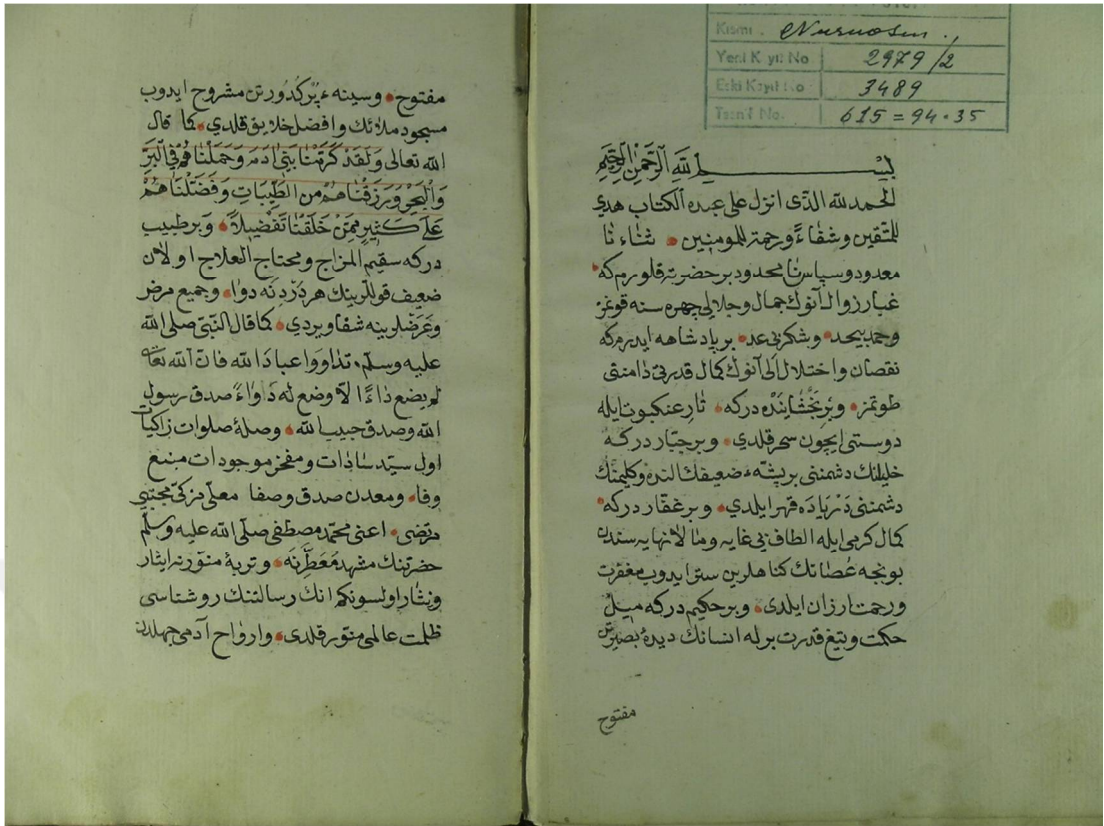 Kısmı . Nuruosm.,
Yeni Kayıt No 2979/2
Eski Kayıt No 3489
Tasnif No. 615 = 94.35
بسم الله الرحمن الرحيم
الحمد لله الذى انزل على عبده الكتاب هدي
للمتقين وشفاءً ورحمة للمومنين • ثناء نا
معدود وسپاس نا محدود بر حضرته قلورم كه
غبار زوال آنوك جمال وجلالى چهره سنه قونمز
وحمد بيحد • وشكر بى عد • بر پادشاهه ايدرم كه
نقصان واختلال الى آنوك كمال قدرتى دامنى
طوتمز • وبر بخشاينده دركه • تار عنكبوت ايله
دوستى ايچون سحر قلدي • وبر جبار دركه
خليلنك دشمننى بر پشّهء ضعيفك النده وكليمنك
دشمننى دريا ده قهر ايلدي • وبر غفار دركه •
كمال كرمى ايله الطاف بى غايه ومالا نهايه سندن
بونجه عُصاتك كناهلرين ستر ايدوب مغفرت
ورحمت ارزان ايلدى • وبر حكيم دركه ميل
حكمت وتيغ قدرت برله انسانك ديدهٔ بصيرتن
مفتوح
مفتوح • وسينهء پُر كدورتن مشروح ايدوب
مسجود ملائك وافضل خلايق قلدي • كما قال
الله تعالى ولقد كرّمنا بني ادم وحملناهم في البرّ
والبحر ورزقناهم من الطّيبات وفضّلناهم
على كثير ممّن خلقنا تفضيلاً • وبر طبيب
دركه سقيم المزاج ومحتاج العلاج اولان
ضعيف قوللرينك هر دردنه دوا • وجميع مرض
وعرضلرينه شفا ويردي • كما قال النّبى صلى الله
عليه وسلم • تداووا عباد الله فان الله تعالى
لم يضع داءً الا وضع له دواءً صدق رسول
الله وصدق حبيب الله • وصلهٔ صلوات زاكيات
اول سيّد سادات ومفخر موجودات منبع
وفا • ومعدن صدق وصفا معلّى مزكّى مجتبى
مرتضى • اعنى محمّد مصطفى صلّى الله عليه وسلم
حضرتنك مشهد معطّرنه • وتربهٔ منوّرنه ايثار
ونثار اولسونكم انك رسالتنك روشناسى
ظلمت عالمى منوّر قلدى • وارواح آدمى جهلدن